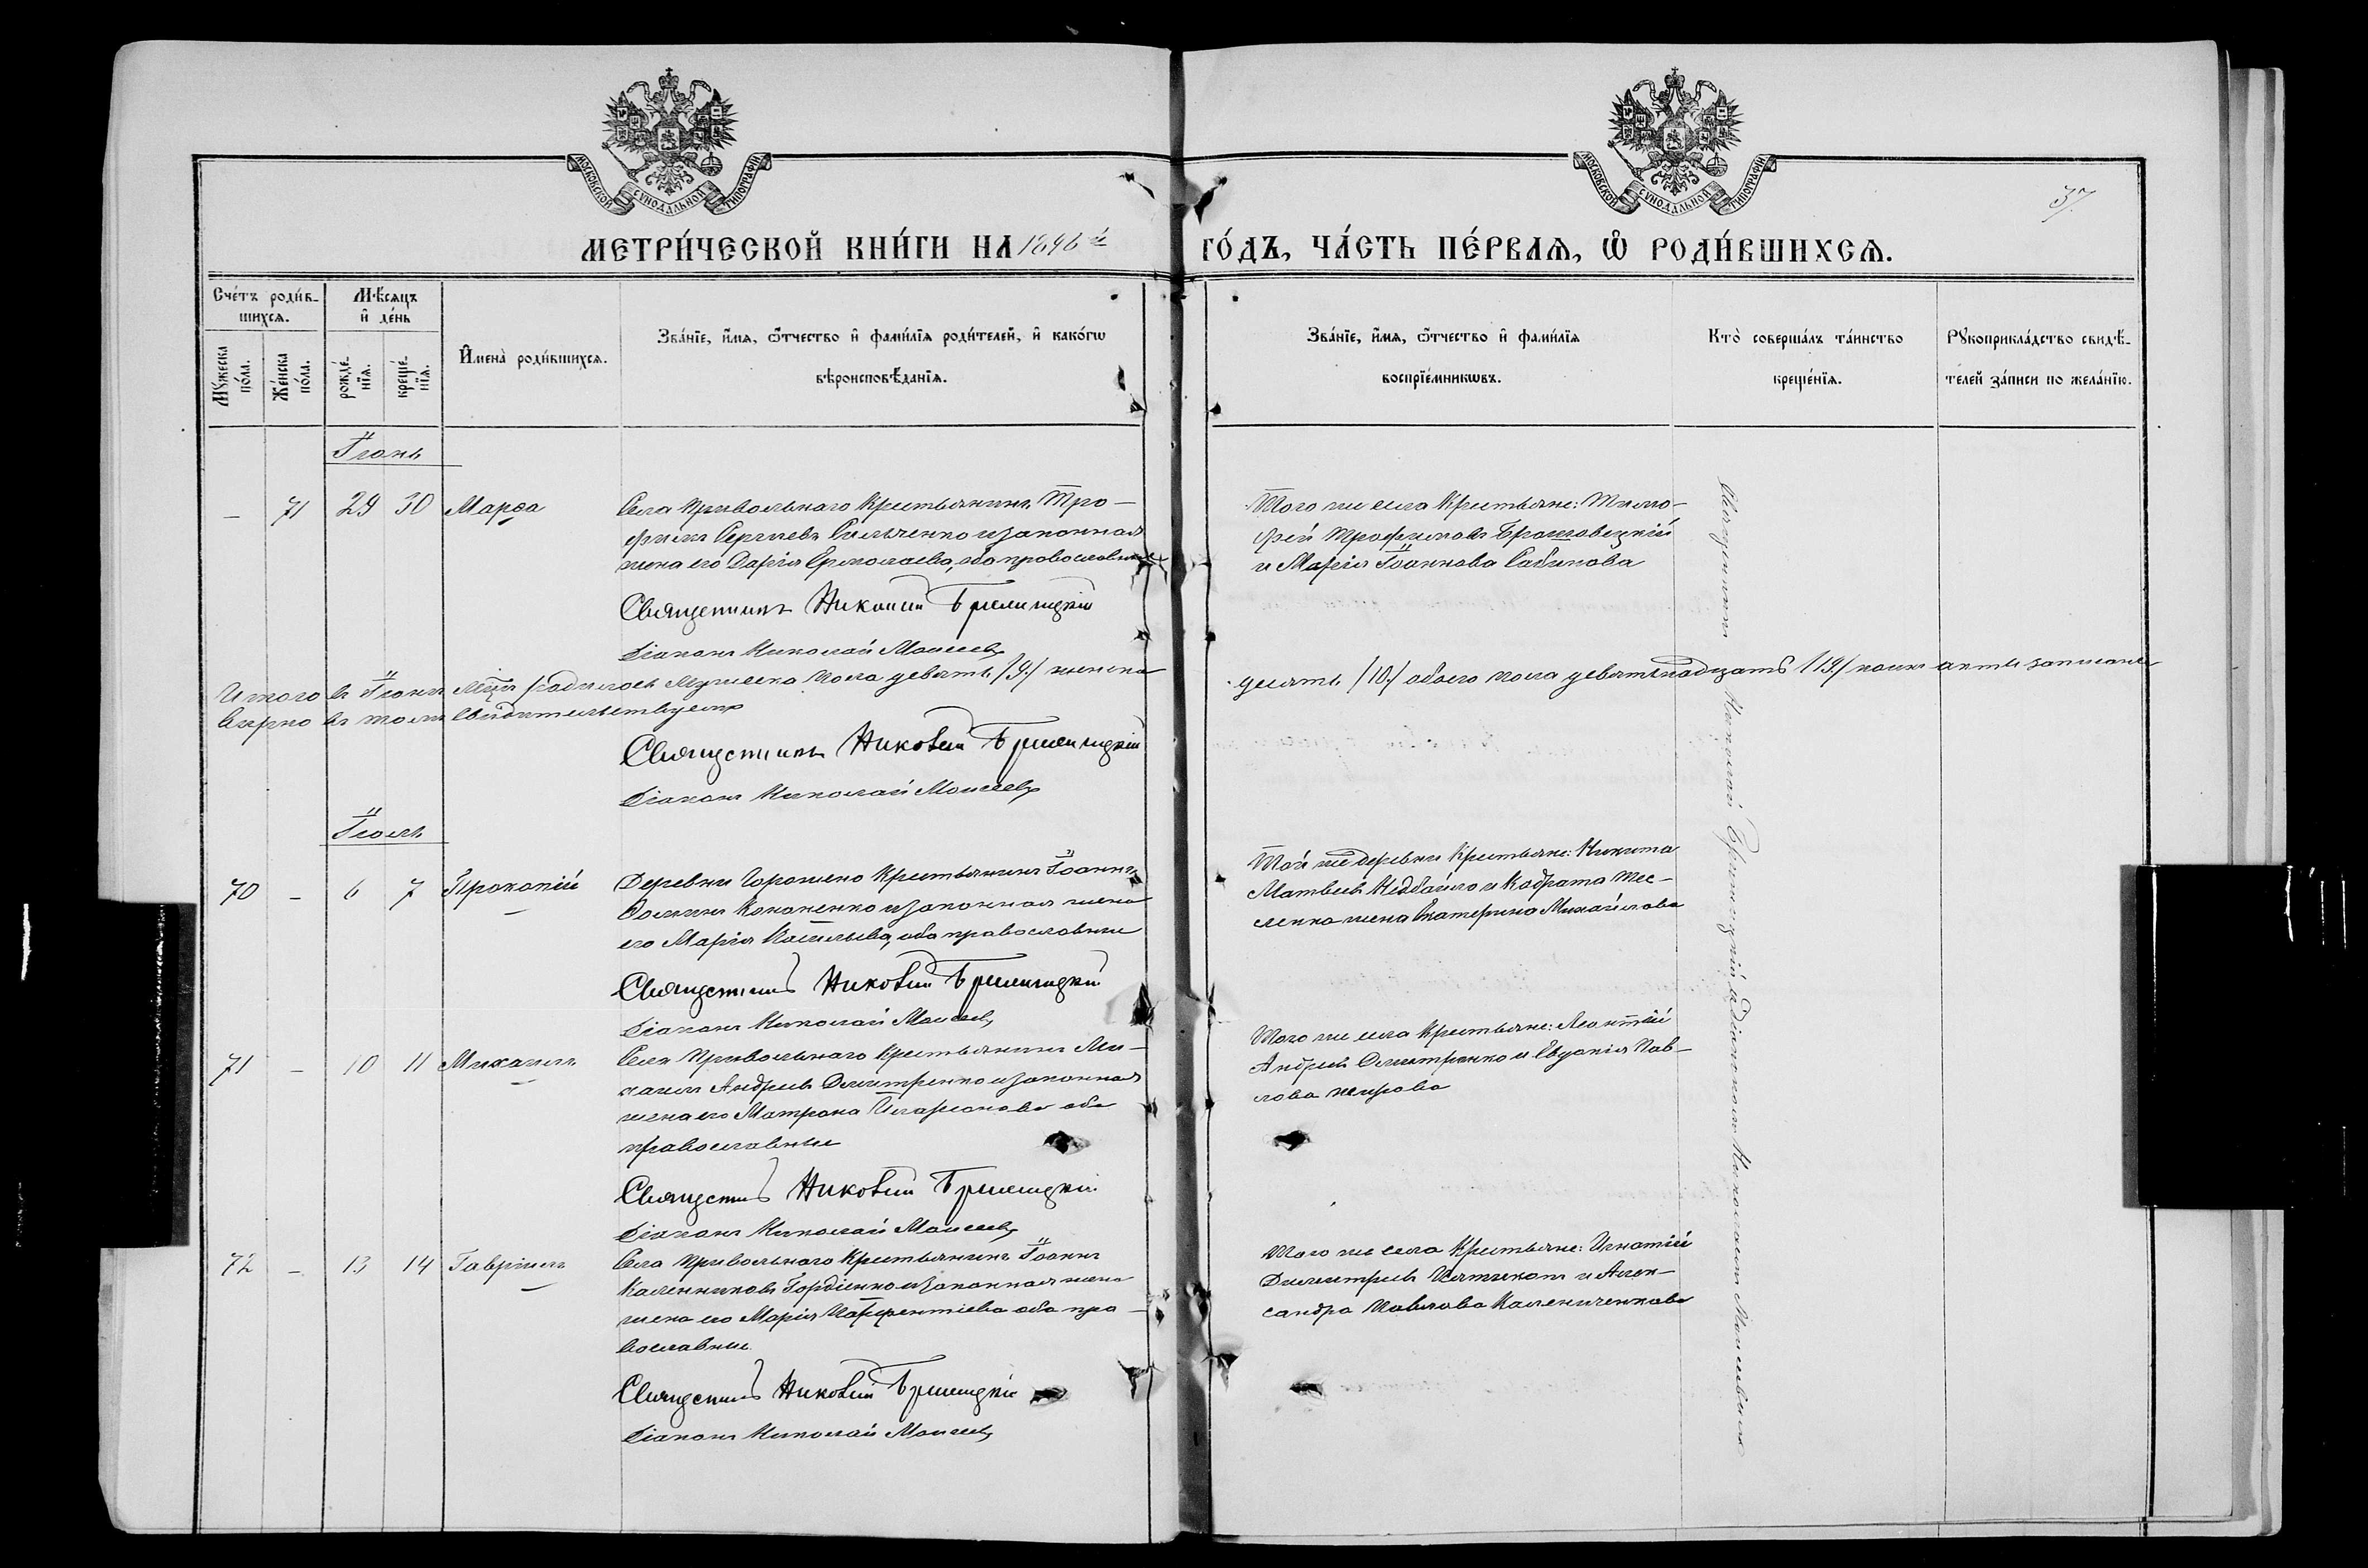 МОСКОВСКОЙ СѴНОДАЛЬНОЙ ТИПОГРАФІИ
МОСКОВСКОЙ СѴНОДАЛЬНОЙ ТИПОГРАФІИ
37
МЕТРИ́ЧЕСКОЙ КНИ́ГИ НА 1896й ГО́ДЪ, ЧА́СТЬ ПЕ́РВАѦ, Ѡ РОДИ́ВШИХСѦ.
Сче́тъ роди́в-
шихсѧ.
Мꙋ́жеска по́ла.
Же́нска по́ла.
Мѣ́сяцъ
и де́нь
рожде́нїѧ.
креще́нїѧ.
Имена̀ роди́вшихсѧ.
Зва́нїе, и́мѧ, ѻ́тчество и фами́лїѧ роди́телей, и како́гѡ
вѣроисповѣ́данїѧ.
Зва́нїе, и́мѧ, ѻ́тчество и фами́лїѧ
воспрїе́мникѡвъ.
Кто̀ соверша́лъ та́инство
креще́нїѧ.
Рꙋкоприкла́дство свидѣ́-
телей за́писи по жела́нїю.
Іюнь
- 71 29 30 Марѳа
Села Привольнаго Крестьянинъ Тро-
фимъ Сергіевъ Сильченко и законная
жена его Дарія Ермолаева, оба православные
Священникъ Никовій Брилицкій
Діаконъ Николай Моисеевъ
Того же села Крестьяне: Тимо-
фей Трофимовъ
и Марія Іоаннова Сабинова
Итого въ Іюнѣ мцѣ родилось мужеска пола девять /9/ женска десять /10/ обоего пола девятнадцать /19/ коихъ акты записаны
вѣрно въ томъ свидѣтельствуемъ
Священникъ Никовій Брилицкій
Діаконъ Николай Моисеевъ
Іюль
70 - 6 7 Прокопій
Деревни Горожено Крестьянинъ Іоаннъ
Фоминъ Кононенко и законная жена
его Марія Васильева, оба православные
Священникъ Никовій Брилицкій
Діаконъ Николай Моисеевъ
Той же деревни Крестьяне: Никита
Матвеевъ Недбайло и Кодрата Тес-
ленка жена Екатерина Михайлова
71 - 10 11 Михаилъ
Села Привольнаго Крестьянинъ Ми-
хаилъ Андреевъ Дмитренко и законная
жена его Матрона Иларионова оба
православные
Священникъ Никовій Брилицкій
Діаконъ Николай Моисеевъ
Того же села Крестьяне: Леонтій
Андреевъ Дмитренко и Евдокія Пав-
лова
72 - 13 14 Гавріилъ
Села Привольнаго Крестьянинъ Іоаннъ
Каленниковъ Гордіенко и законная жена
жена его Марія Парфентіева оба пра-
вославные
Священникъ Никовій Брилицкій
Діаконъ Николай Моисеевъ
Того же села Крестьяне: Игнатій
Димитріевъ и Алек-
сандра Павлова Калениченкова
Священникъ Брилицкій съ діакономъ Николаемъ Моисеевымъ